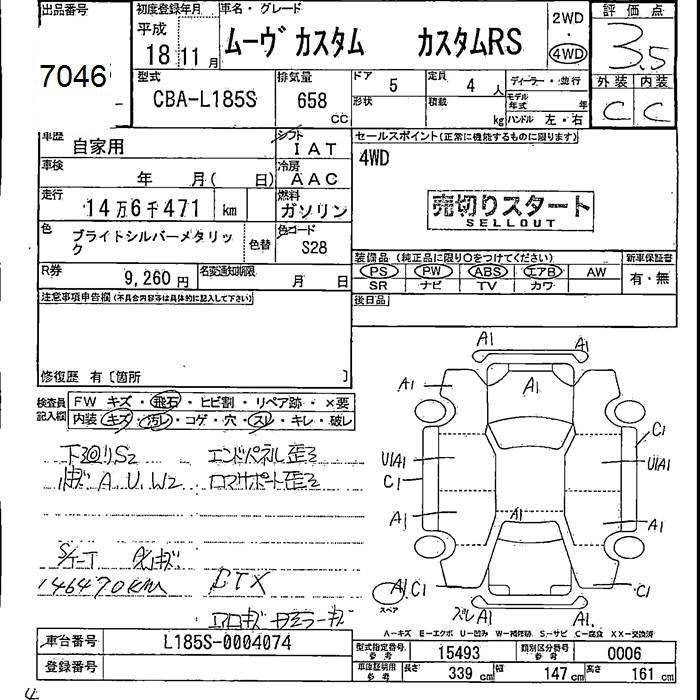 出品番号
7046
初度登録年月
平成
18 11月
車名・グレード
ムーヴ カスタム カスタムRS
2WD
・
4WD
評価点
3.5
型式
CBA-L185S
排気量
658 CC
ドア 5
形状
定員 4 人
積載 kg
ディーラー・並行
モデル年式 年
ハンドル 左・右
外装 内装
C C
車歴
自家用
シフト
IAT
セールスポイント(正常に機能するものに限ります)
4WD
車検
年 月( 日)
冷房
AAC
走行
14万6千471 km
燃料
ガソリン
売切りスタート
SELLOUT
色
ブライトシルバーメタリック
色替
色コード
S28
装備品 (純正品に限り○をつけてください)
新車保証書
R券
9,260円
名変通知期限
月 日
PS PW ABS エアB AW
SR ナビ TV カワ
有・無
注意事項申告欄(不具合内容等は具体的に記入して下さい)
後日品
修復歴 有〔箇所 〕
検査員記入欄
FW キズ・飛石・ヒビ割・リペア跡・×要
内装・キズ・汚レ・コゲ・穴・スレ・キレ・破レ
下廻りS2 エンドパネル歪ミ
A U W2 コアサポート歪ミ
146470KM
A1 A1
A1 A1
C1
U1A1 U1A1
C1
A1 A1 A1
A1 C1 C1
スペア
スレA1 A1
A-キズ E-エクボ U-凹み W-補修跡 S-サビ C-腐食 XX-交換済
車台番号
L185S-0004074
登録番号
型式指定番号 参考 15493
類別区分番号 参考 0006
車庫証明用 参考
長さ 339 cm 幅 147 cm 高さ 161 cm